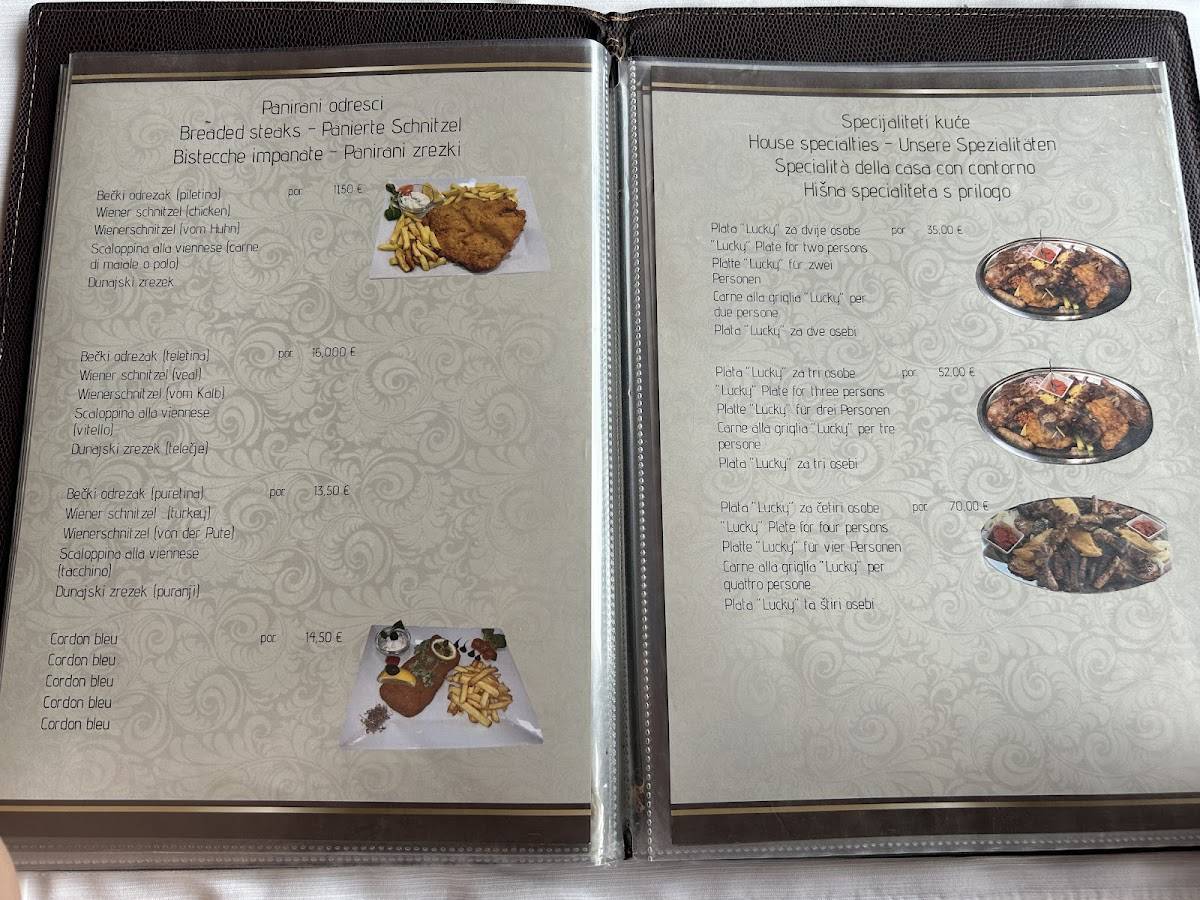 Panirani odresci
Breaded steaks - Panierte Schnitzel
Bistecche impanate - Panirani zrezki
Bečki odrezak (piletina) por. 11,50 €
Wiener schnitzel (chicken)
Wienerschnitzel (vom Huhn)
Scaloppina alla viennese (carne
di maiale o polo)
Dunajski zrezek
Bečki odrezak (teletina) por. 16,000 €
Wiener schnitzel (veal)
Wienerschnitzel (vom Kalb)
Scaloppina alla viennese
(vitello)
Dunajski zrezek (telečje)
Bečki odrezak (puretina) por. 13,50 €
Wiener schnitzel (turkey)
Wienerschnitzel (von der Pute)
Scaloppina alla viennese
(tacchino)
Dunajski zrezek (puranji)
Cordon bleu por. 14,50 €
Cordon bleu
Cordon bleu
Cordon bleu
Cordon bleu
Specijaliteti kuće
House specialties - Unsere Spezialitäten
Specialità della casa con contorno
Hišna specialiteta s prilogo
Plata "Lucky" za dvije osobe por. 35,00 €
"Lucky" Plate for two persons
Platte "Lucky" für zwei
Personen
Carne alla griglia "Lucky" per
due persone
Plata "Lucky" za dve osebi
Plata "Lucky" za tri osobe por. 52,00 €
"Lucky" Plate for three persons
Platte "Lucky" für drei Personen
Carne alla griglia "Lucky" per tre
persone
Plata "Lucky" za tri osebi
Plata "Lucky" za četiri osobe por. 70,00 €
"Lucky" Plate for four persons
Platte "Lucky" für vier Personen
Carne alla griglia "Lucky" per
quattro persone
Plata "Lucky" ta štiri osebi